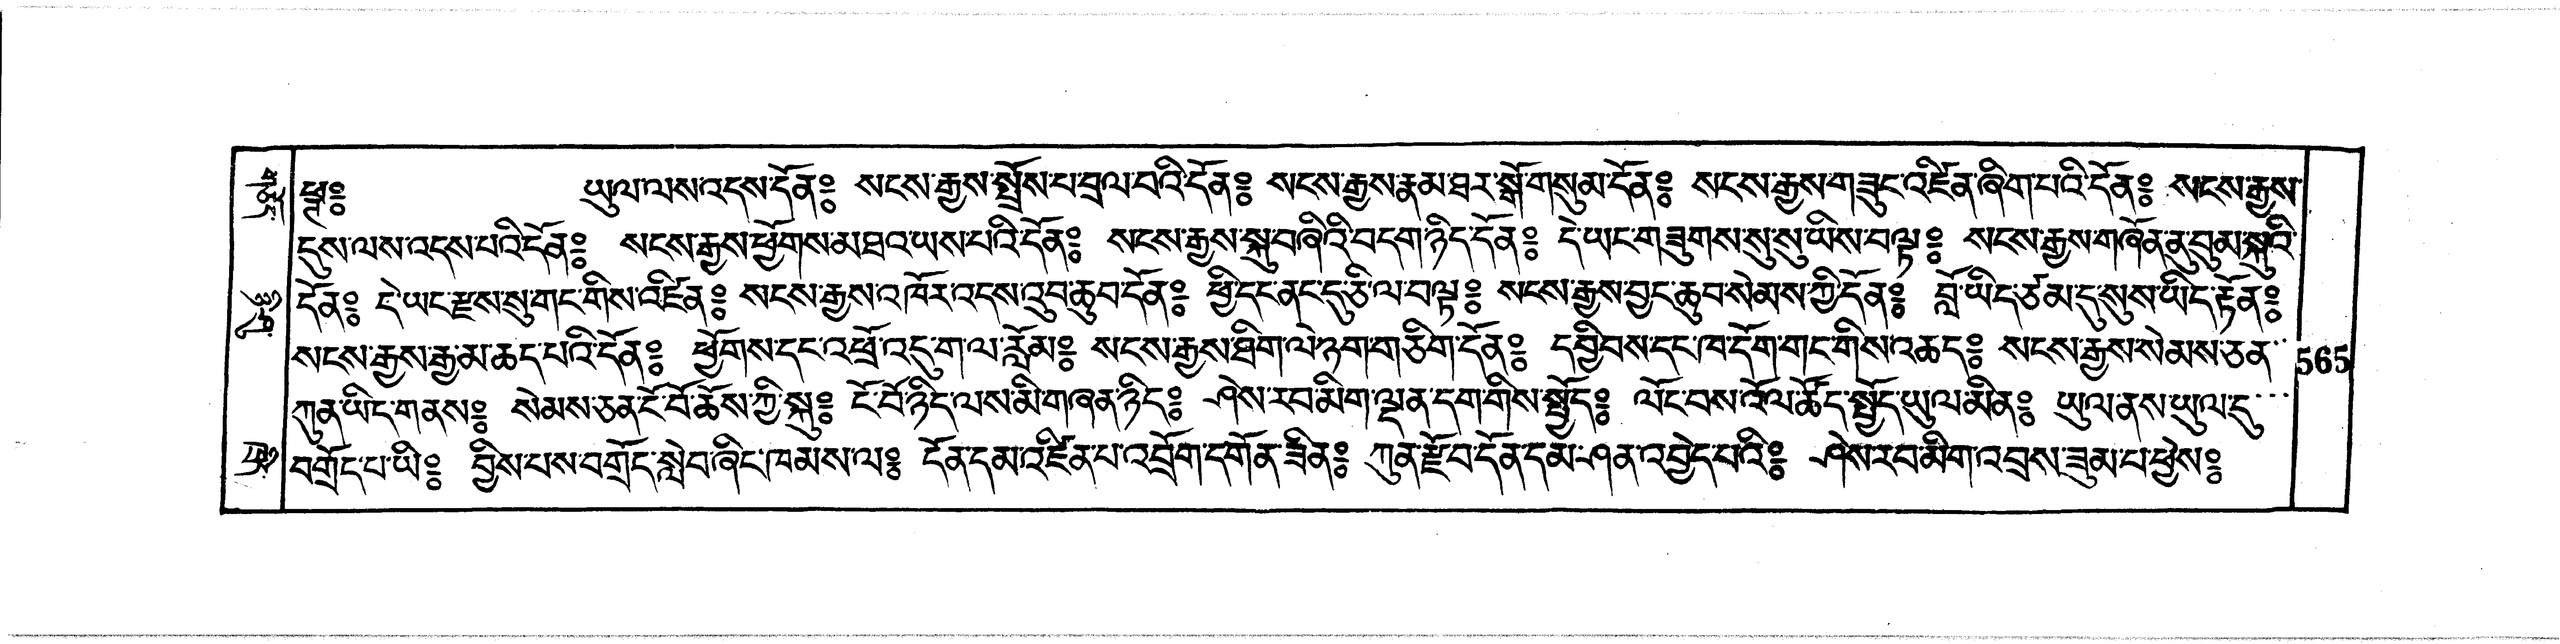 ཕྲ༔ ཡུལ་ལས་འདས་དོན༔ སངས་རྒྱས་སྤྲོས་པ་བྲལ་བའི་དོན༔ སངས་རྒྱས་རྣམ་ཐར་སྒོ་གསུམ་དོན༔ སངས་རྒྱས་གཟུང་འཛིན་ཞིག་པའི་དོན༔ སངས་རྒྱས་
དུས་ལས་འདས་པའི་དོན༔ སངས་རྒྱས་ཕྱོགས་མཐའ་ཡས་པའི་དོན༔ སངས་རྒྱས་སྐུ་བཞིའི་བདག་ཉིད་དོན༔ དེ་ཡང་གཟུགས་སུ་སུ་ཡིས་བལྟ༔ སངས་རྒྱས་གཞོན་ནུ་བུམ་སྐུའི་
དོན༔ དེ་ཡང་རྫས་སུ་གང་གིས་འཛིན༔ སངས་རྒྱས་འཁོར་འདས་འུབ་ཆུབ་དོན༔ ཕྱི་དང་ནང་དུ་ཅི་ལ་བལྟ༔ སངས་རྒྱས་བྱང་ཆུབ་སེམས་ཀྱི་དོན༔ བློ་ཡིད་ཙམ་དུ་སུས་ཡིད་རྟོན༔
སངས་རྒྱས་རྒྱ་མ་ཆད་པའི་དོན༔ ཕྱོགས་དང་འཕྲོ་འདུ་ག་ལ་རློམ༔ སངས་རྒྱས་ཐིག་ལེ་ཉག་གཅིག་དོན༔ དབྱིབས་དང་ཁ་དོག་གང་གིས་འཆད༔ སངས་རྒྱས་སེམས་ཅན་
ཀུན་ཡིད་གནས༔ སེམས་ཅན་ངོ་བོ་ཆོས་ཀྱི་སྐུ༔ ངོ་བོ་ཉིད་ལས་མི་གཞན་ཉིད༔ ཤེས་རབ་མིག་ལྡན་དག་གིས་སྤྱོད༔ ལོང་བས་འོལ་ཚོད་སྤྱོད་ཡུལ་མིན༔ ཡུལ་ནས་ཡུལ་དུ་
བགྲོད་པ་ཡི༔ བྱིས་པས་བགྲོད་སླེབ་ཞིང་ཁམས་ལ༔ དོན་དམ་འཛིན་པ་འབྲོག་དགོན་ཟིན༔ ཀུན་རྫོབ་དོན་དམ་ཤན་འབྱེད་པའི༔ ཤེས་རབ་མིག་འབྲས་ཟུམ་པ་ཕྱེས༔
565